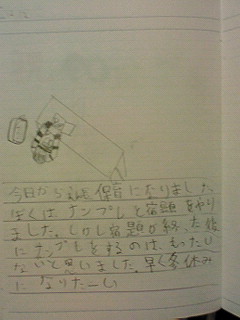 今日から 保育になりました。
ぼくは、ナンプレと宿題をやり
ました。しかし宿題が終った後
にナンプレをするのは、もったい
ないと思いました。早く冬休み
になりたーい